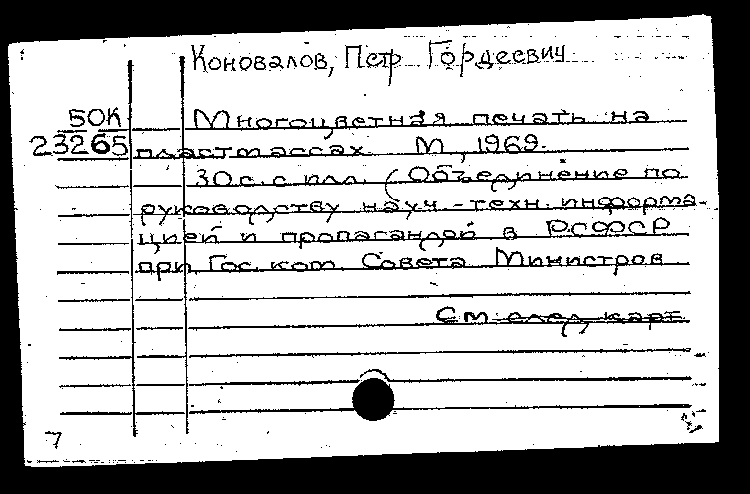 Коновалов, Петр Гордеевич
50К Многоцветная печать на
23265 пластмассах. М, 1969.
30 с. с илл. (Объединение по
руководству науч.-техн. информа-
цией и пропагандой в РСФСР
при Гос. ком. Совета Министров
См след, карт
7